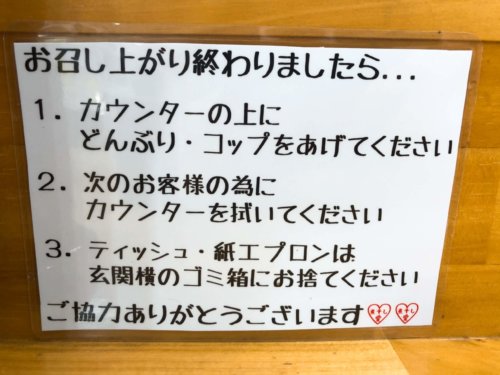 お召し上がり終わりましたら...
1. カウンターの上に
どんぶり・コップをあげてください
2. 次のお客様の為に
カウンターを拭いてください
3. ティッシュ・紙エプロンは
玄関横のゴミ箱にお捨てください
ご協力ありがとうございます